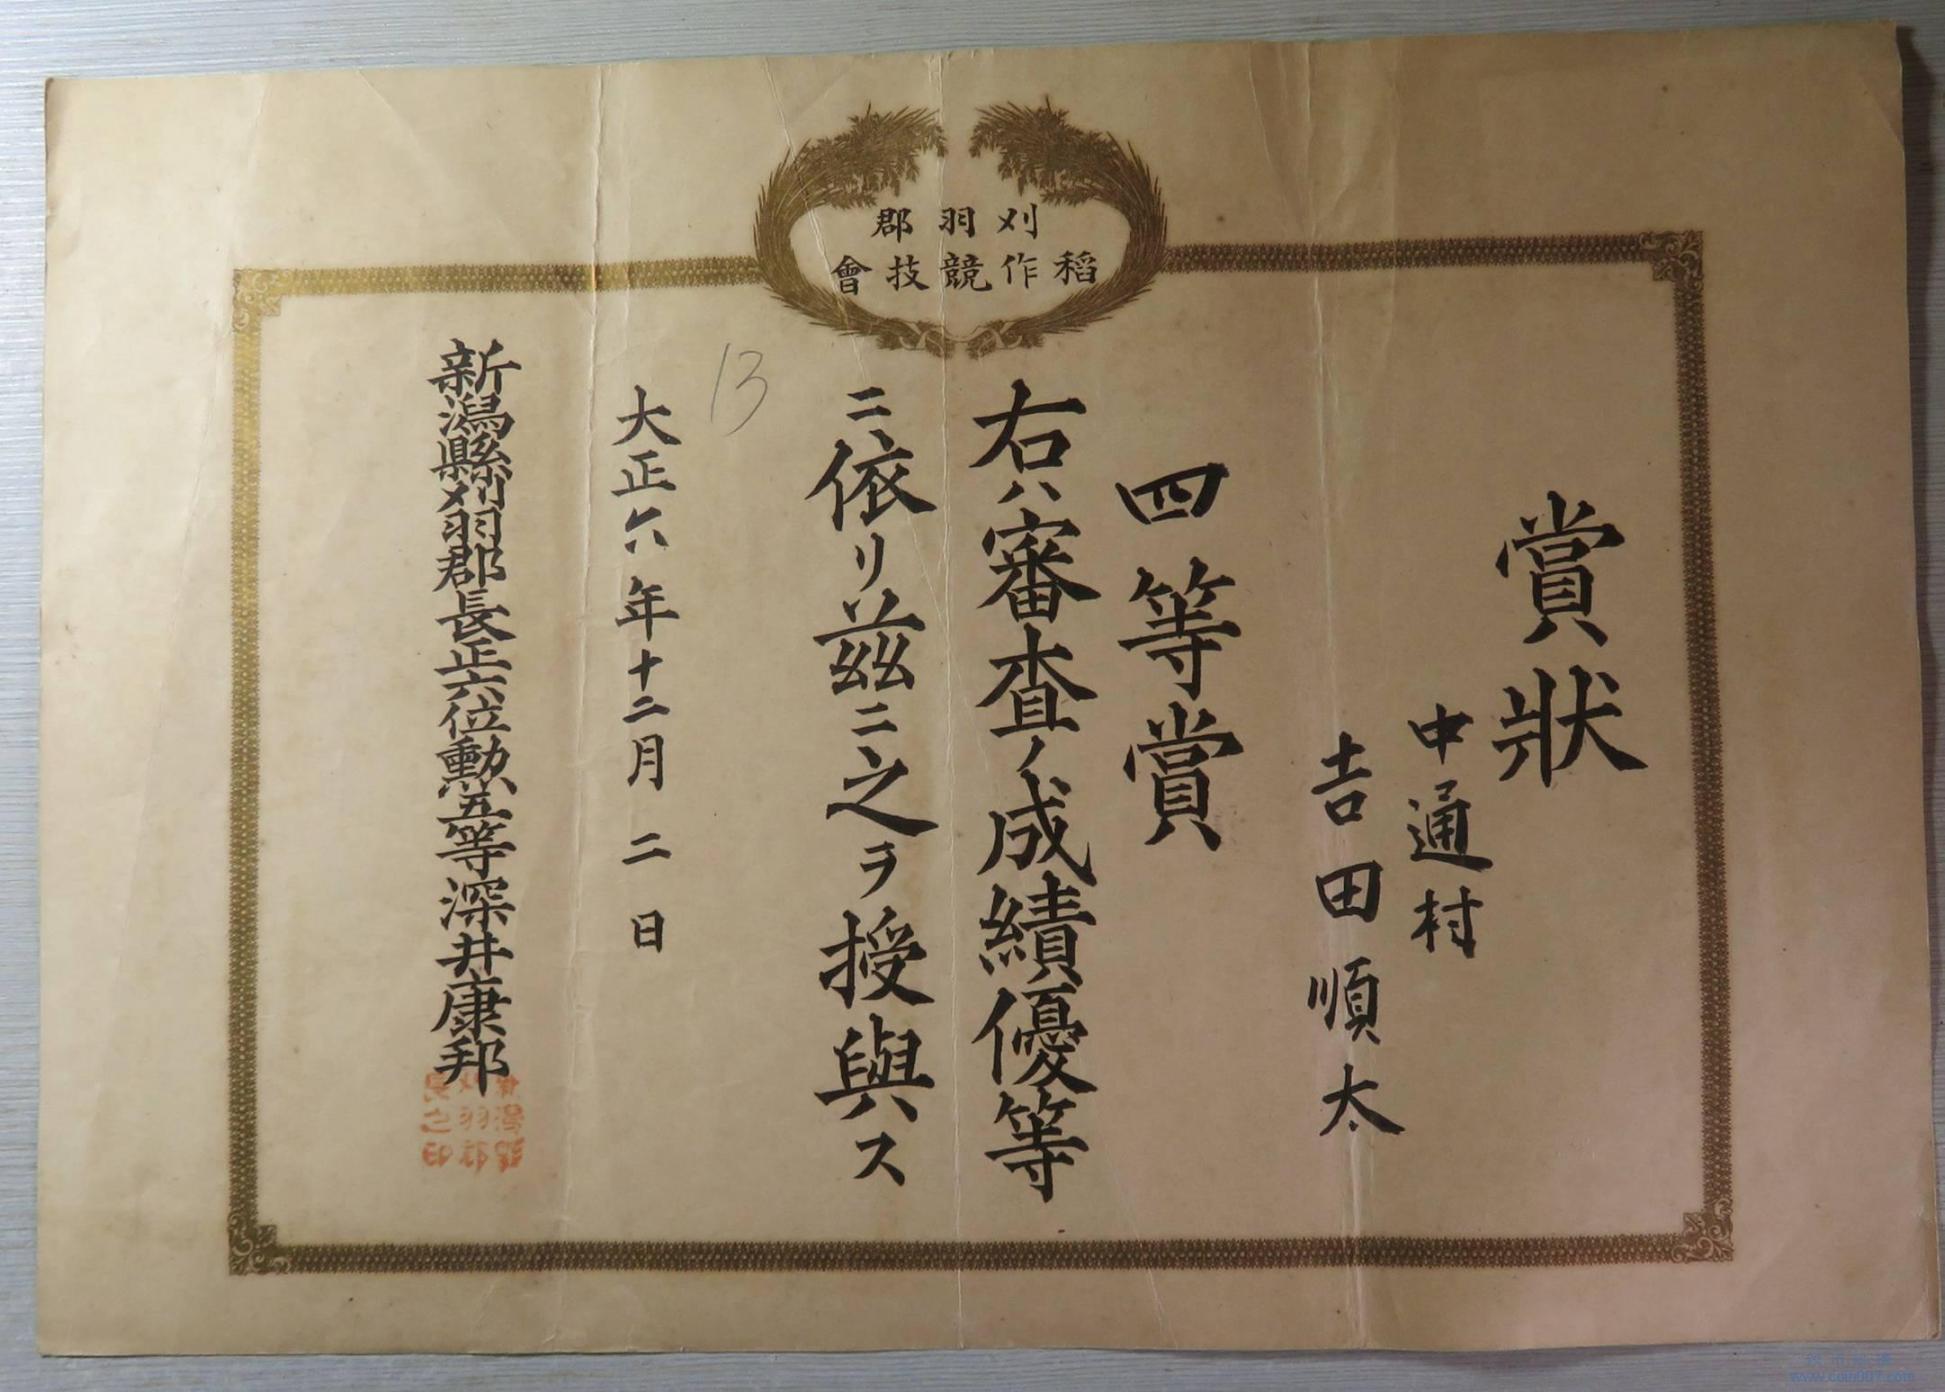 刈羽郡
稻作競技會
賞狀
中通村
吉田順太
四等賞
右ハ審査ノ成績優等
ニ依リ茲ニ之ヲ授與ス
13
大正六年十二月二日
新潟縣刈羽郡長正六位勳五等深井康邦
www.coin007.com